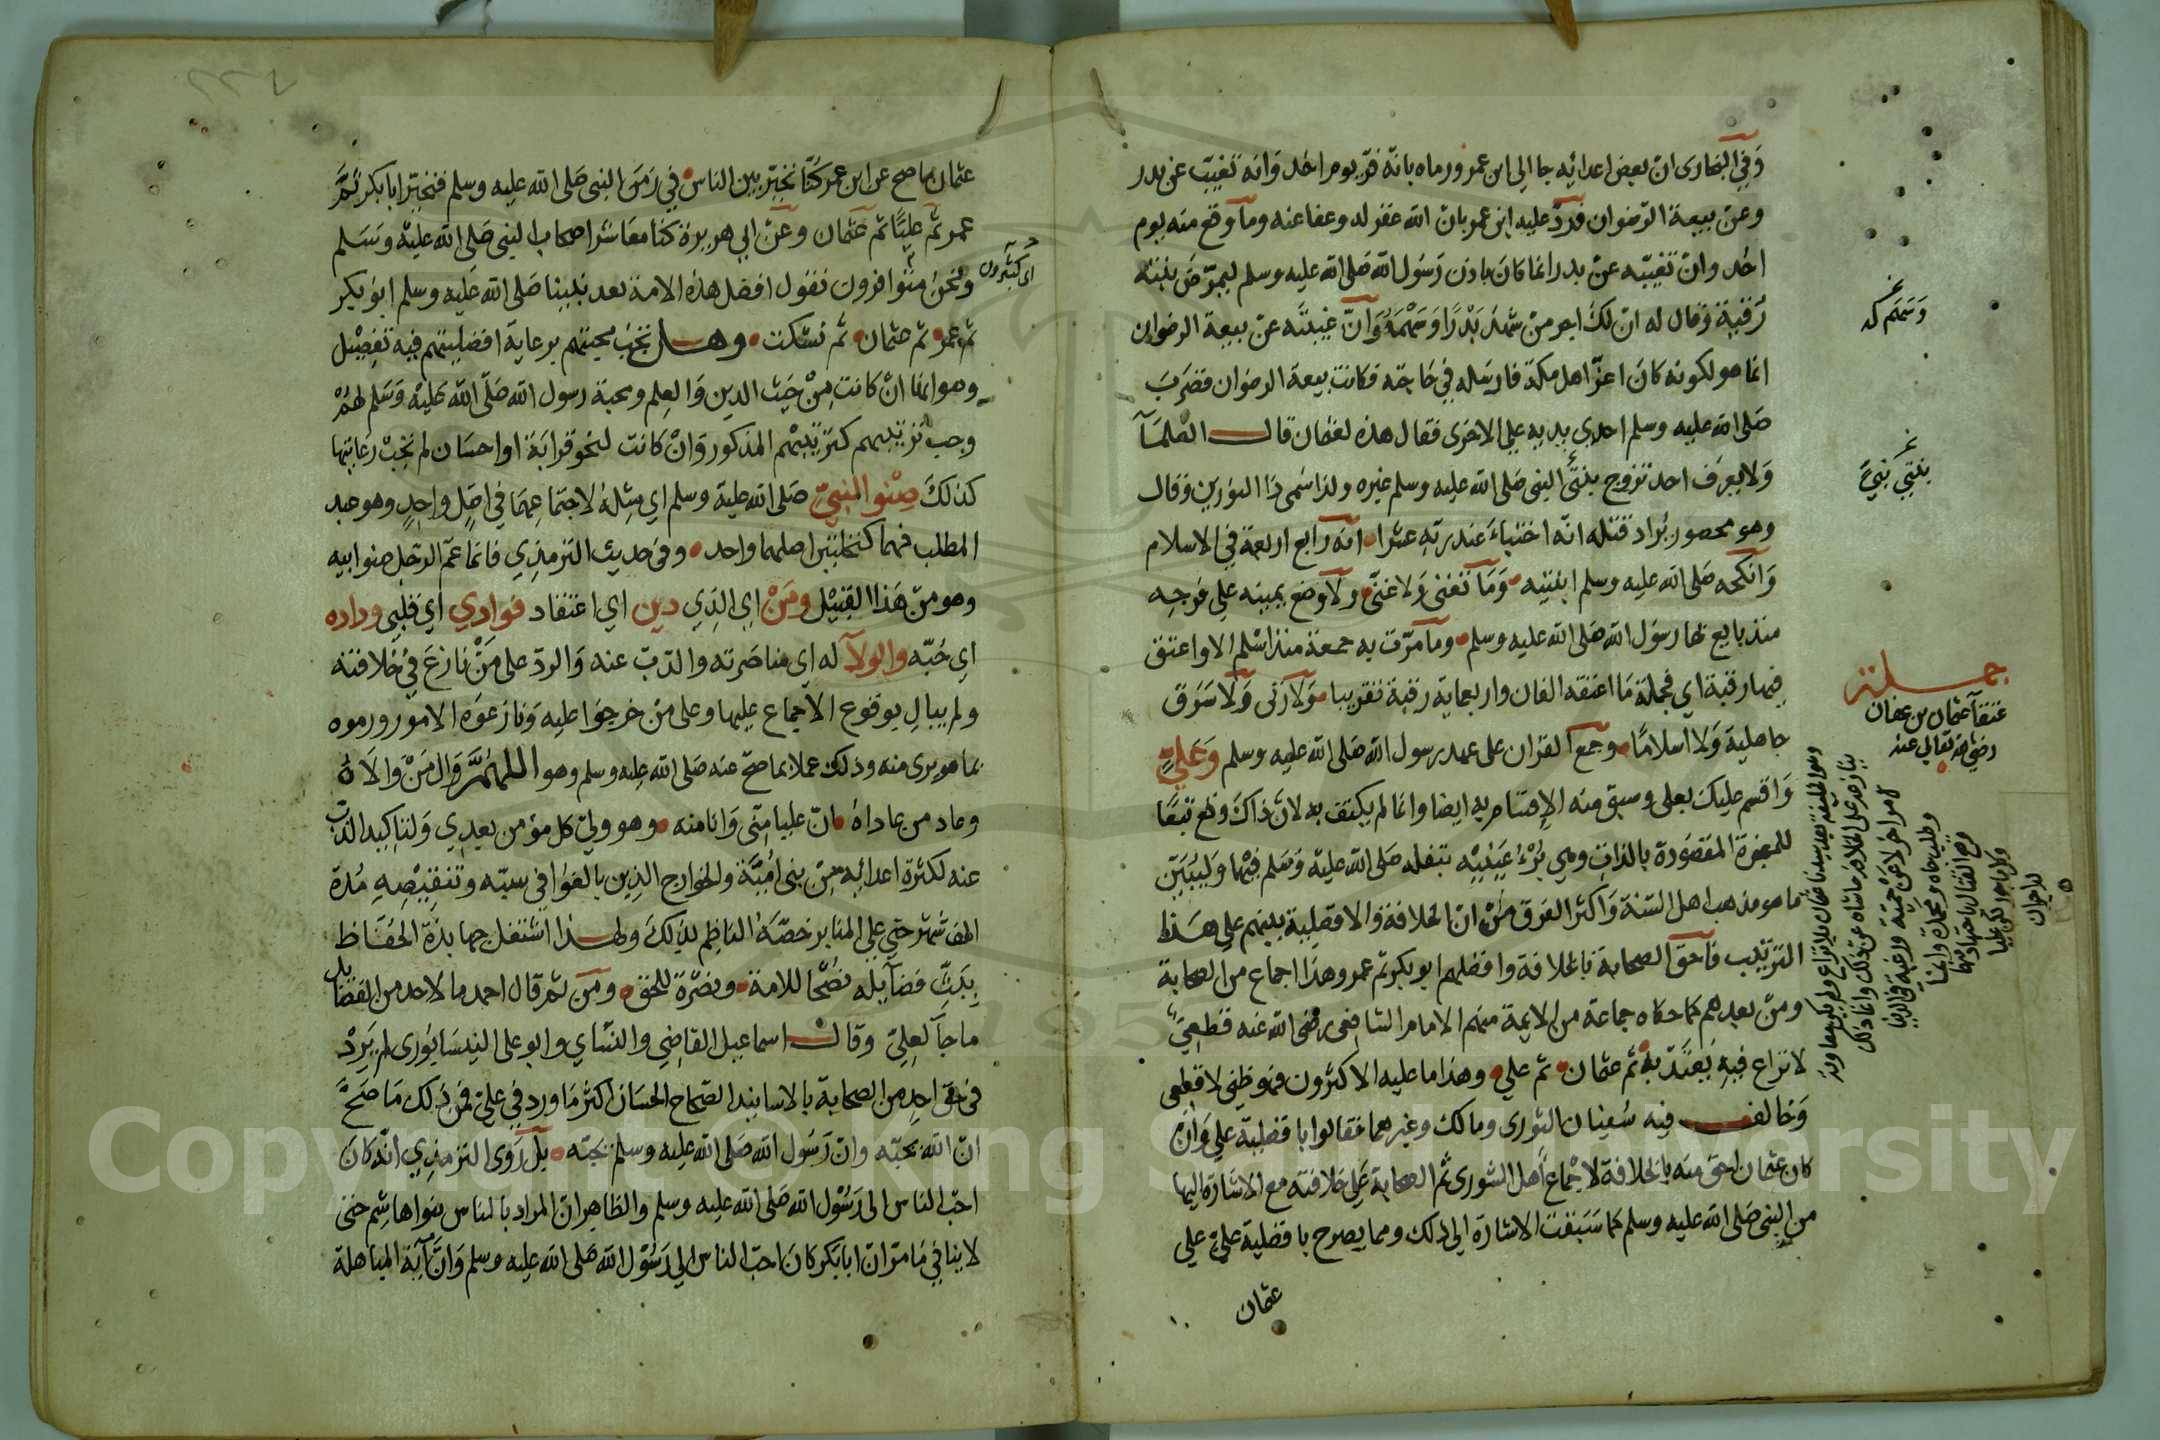 وفي البخاري ان بعض اعدائه جا الي ابن عمر ورماه بانه فر يوم احد وانه تغيب عن بدر
وعن بيعة الرضوان فرد عليه ابن عمر بان الله غفر له وعفا عنه وما وقع منه يوم
احد وان تغيبه عن بدر انما كان باذن رسول الله صلى الله عليه وسلم ليمرض بنته
رقية وقال له ان لك اجر من شهد بدرا وسهمه وان غيبته عن بيعة الرضوان
انما هو لكونه كان اعز اهل مكة فارسله في حاجته فكانت بيعة الرضوان فضرب
صلى الله عليه وسلم احدي يديه علي الاخرى فقال هذه لعثمان قال العلمآ
ولا يعرف احد تزوج بنتي النبي صلى الله عليه وسلم غيره ولذا سمى ذا النورين وقال
وهو محصور يراد قتله انه اختباء عند ربه عشرا انه رابع اربعة في الاسلام
وانكحه صلى الله عليه وسلم ابنتيه وما تغنى ولا تمنى ولا وضع يمينه علي فرجه
منذ بايع بها رسول الله صلى الله عليه وسلم وما مرت به جمعة منذ اسلم الا واعتق
فيها رقبة اي فجملة ما اعتقه الفان واربعماية رقبة تقريبا ولا زنى ولا سرق
جاهلية ولا اسلاما وجمع القران على عهد رسول الله صلى الله عليه وسلم وعلي
واقسم عليك بعلى وسبق منه الاقسام به ايضا وانما لم يكتف به لان ذاك وقع تبعا
للمعجزة المقصودة بالذات وهي برء عينيه بتفله صلى الله عليه وسلم فيها وليبين
ما هو مذهب اهل السنة واكثر الفرق من ان الخلافة والافضلية بينهم على هذا
الترتيب فاحق الصحابة بالخلافة وافضلهم ابو بكر ثم عمر وهذا اجماع من الصحابة
ومن بعدهم كما حكاه جماعة من الايمة منهم الامام الشافعي رضى الله عنه قطعي
لا نزاع فيه يعتد به ثم عثمان ثم علي وهذا ما عليه الاكثرون فهو ظني لا قطعي
وخالف فيه سفيان الثورى ومالك وغيرهما فقالوا بافضلية علي وان
كان عثمان احق منه بالخلافة لاجماع اهل الشورى ثم الصحابة علي خلافته مع الاشارة اليها
من النبي صلى الله عليه وسلم كما سبقت الاشارة الي ذلك ومما يصرح بافضلية علي علي
عثمان
وسهم له
بنتي نبي
جملة
عتقآ عثمان بن عفان
رضي الله تعالى عنه
عثمان ما صح عن ابن عمر كنا نخير بين الناس في زمن النبي صلى الله عليه وسلم فنخير ابا بكر ثم
عمر ثم عليا ثم عثمان وعن ابي هريرة كنا معاشر اصحاب النبي صلى الله عليه وسلم
ونحن متوافرون نقول افضل هذه الامة بعد نبينا صلى الله عليه وسلم ابو بكر
اي كثيرون
ثم عمر ثم عثمان ثم نسكت وهل تجب محبتهم برعاية افضليتهم فيه تفصيل
وهو انها ان كانت من حيث الدين والعلم ومحبة رسول الله صلى الله عليه وسلم لهم
وجب ترتيبهم كترتيبهم المذكور وان كانت لنحو قرابة او احسان لم تجب رعايتها
كذلك صنو النبي صلى الله عليه وسلم اي مثله لاجتماعهما في اصل واحد وهو عبد
المطلب فهما كنخلتين اصلهما واحد وفي حديث الترمذي فانما عم الرجل صنو ابيه
وهو من هذا القبيل ومن اي الذي دين اي اعتقاد فوادي اي قلبي وداده
اي حبه والولآ له اي مناصرته والذب عنه والرد على من نازع في خلافته
ولم يبال بوقوع الاجماع عليها وعلى من خرجوا عليه ونازعوه الامور ورموه
بما هو برى منه وذلك عملا بما صح عنه صلى الله عليه وسلم وهو اللهم وال من والاه
وعاد من عاداه ان عليا مني وانا منه وهو ولي كل مؤمن بعدي ولتاكيد الذب
عنه لكثرة اعدائه من بني امية والخوارج الذين بالغوا في سبه وتنقيصه مدة
الف شهر حتي علي المنابر خصه الناظم لذلك ولهذا اشتغل جهابذة الحفاظ
ببث فضآيله نصحا للامة ونصرة للحق ومن ثم قال احمد ما لاحد من الفضايل
ما جآ لعلي وقال اسماعيل القاضي والنساي وابو على النيسابورى لم يرد
في حق احد من الصحابة بالاسانيد الصحاح الحسان اكثر ما ورد في علي فمن ذلك ما صح
ان الله يحبه وان رسول الله صلى الله عليه وسلم يحبه بل روى الترمذي انه كان
احب الناس الى رسول الله صلى الله عليه وسلم والظاهر ان المراد بالناس بنوا هاشم حتى
لا ينافي ما مر ان ابا بكر كان احب الناس الي رسول الله صلى الله عليه وسلم وان آية المباهلة
Copyright © King Saud University